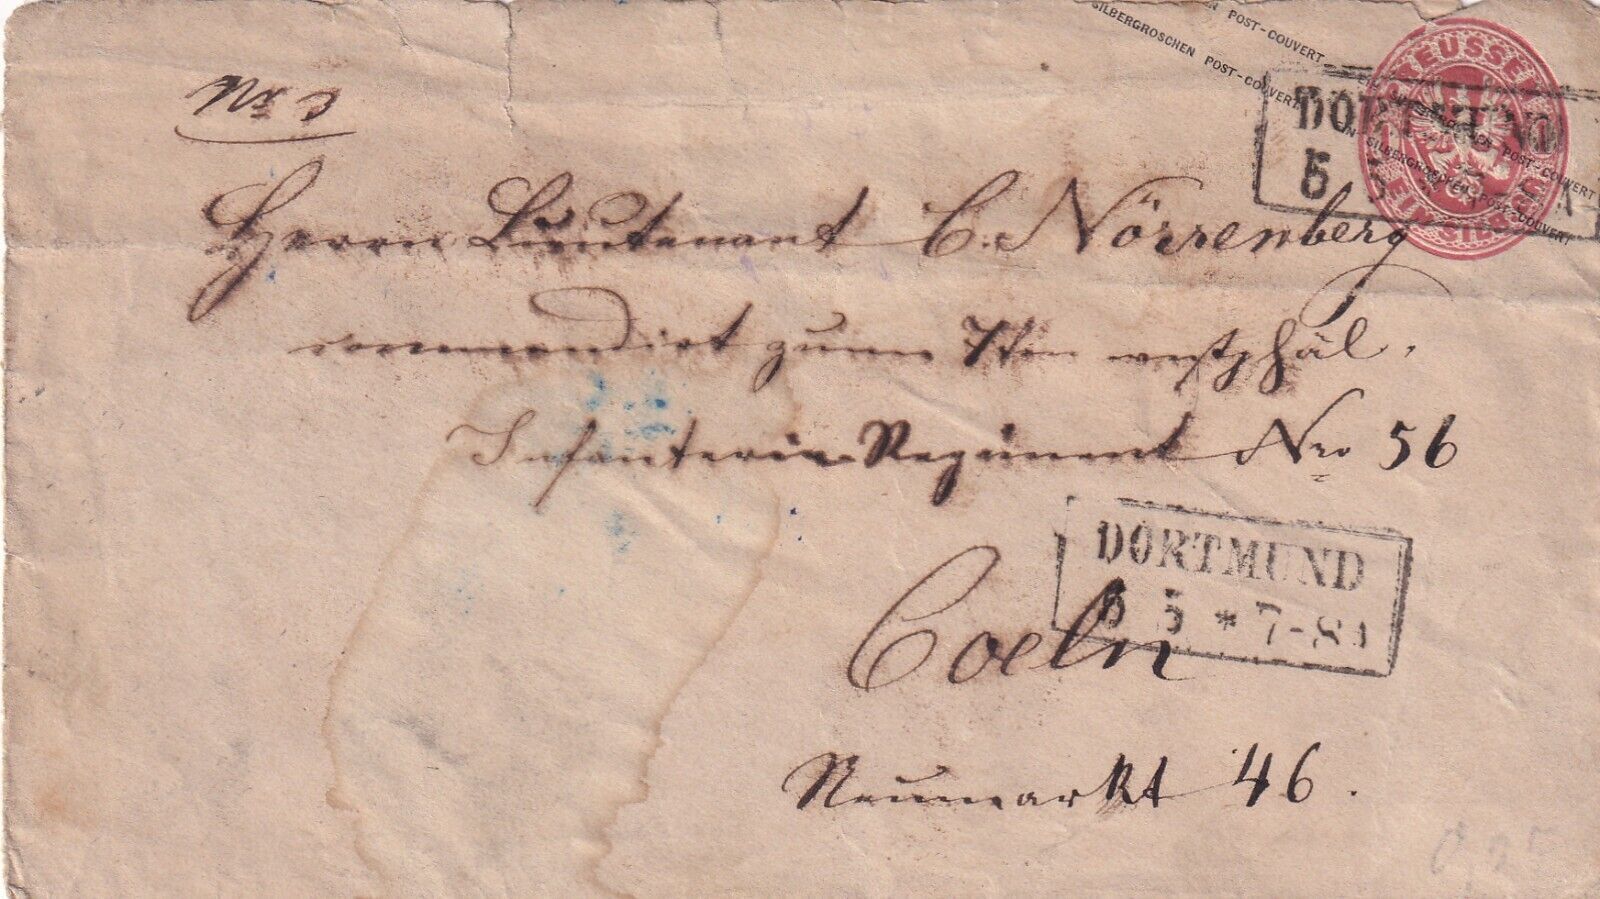 POST-COUVERT
SILBERGROSCHEN POST-COUVERT
PREUSSEN
EIN SILBERGR.
1
DORTMUND
5
Nr
Herrn Lieutenant C. Nörrenberg
commandirt zum 7ten westphäl.
Infanterie Regiment Nro 56
DORTMUND
5 5 * 7-8
Coeln
Neumarkt 46.